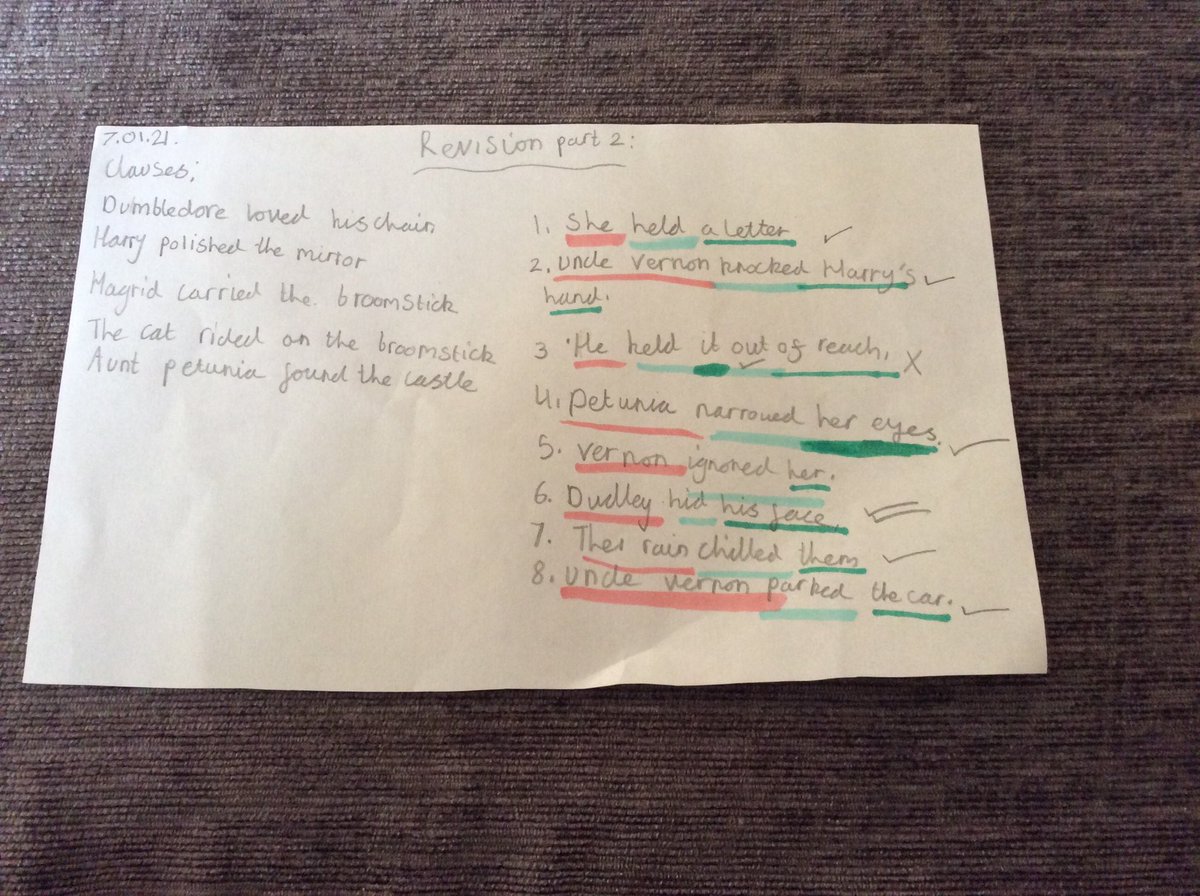 7.01.21.
Revision part 2:
Clauses;
Dumbledore loved his chair
Harry polished the mirror
Hagrid carried the. broomstick
The cat rided on the broomstick
Aunt petunia found the castle
1. She held a letter
2. Uncle Vernon knocked Harry's
hand.
3 He held it out of reach,
4. Petunia narrowed her eyes.
5. Vernon ignored her.
6. Dudley hid his face.
7. Ther rain chilled them
8. Uncle Vernon parked the car.